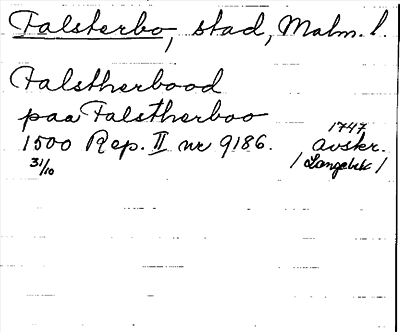 Falsterbo, stad, Malm. l.
Falstherbood
paa Falstherboo
1500 Rep. II nr 9186. 1747 avskr.
31/10 / Langebek /